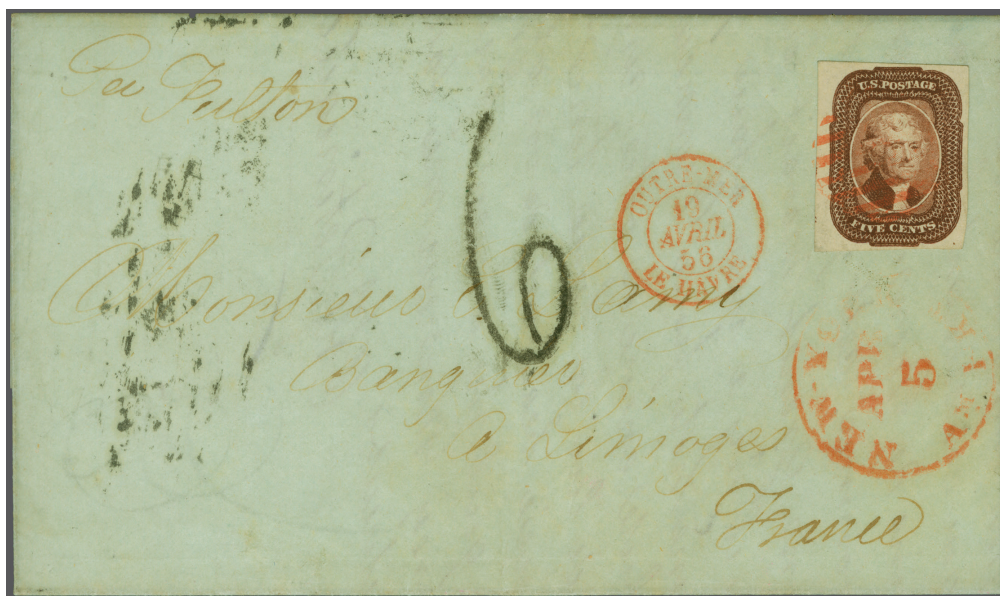 Per Fulton
U.S. POSTAGE
FIVE CENTS
6
OUTRE-MER
19
AVRIL
56
LE HAVRE
Monsieur
Banquier
a Limoges
France
NEW-YORK AM.
APR
5